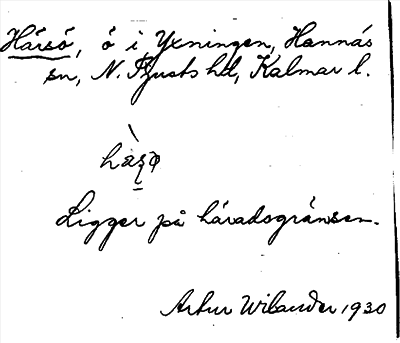 Hårsö, ö i Yxningen, Hannäs
sn, N. Tjusts hd, Kalmar l.
Ligger på häradsgränsen.
Artur Wilander 1930